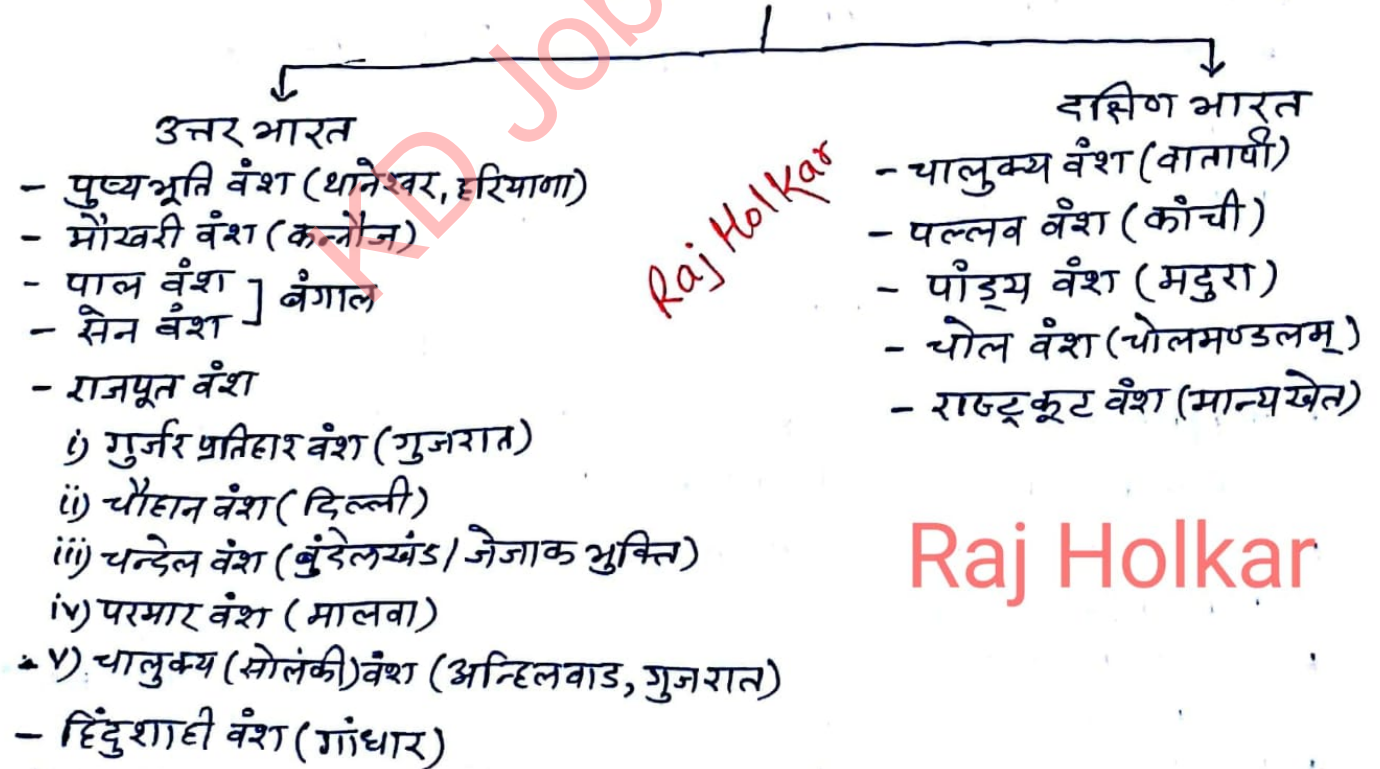 उत्तर भारत
- पुष्यभूति वंश (थानेश्वर, हरियाणा)
- मौखरी वंश (कन्नौज)
- पाल वंश
- सेन वंश ] बंगाल
- राजपूत वंश
i) गुर्जर प्रतिहार वंश (गुजरात)
ii) चौहान वंश (दिल्ली)
iii) चन्देल वंश (बुंदेलखंड / जेजाक भुक्ति)
iv) परमार वंश (मालवा)
v) चालुक्य (सोलंकी) वंश (अन्हिलवाड, गुजरात)
- हिंदुशाही वंश (गांधार)
दक्षिण भारत
- चालुक्य वंश (वातापी)
- पल्लव वंश (कांची)
- पांड्य वंश (मदुरा)
- चोल वंश (चोलमण्डलम्)
- राष्ट्रकूट वंश (मान्यखेत)
Raj Holkar
Raj Holkar
KD Job